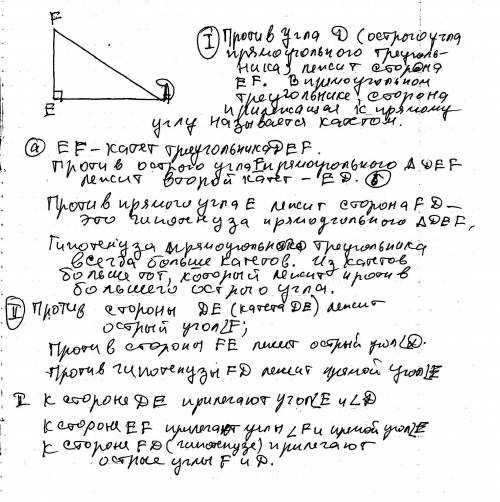 F
E
D
I Против угла D (острого угла
прямоугольного треуголь-
ника) лежит сторона
EF. В прямоугольном
треугольнике сторона
прилежащая к прямому
углу называется катетом.
а EF - катет треугольника DEF.
Против острого угла F прямоугольного ΔDEF
лежит второй катет - ED. б
Против прямого угла E лежит сторона FD -
это гипотенуза прямоугольного ΔDEF,
Гипотенуза прямоугольного треугольника
всегда больше катетов. Из катетов
больше тот, который лежит против
большего острого угла.
II Против стороны DE (катета DE) лежит
острый угол ∠F;
Против стороны FE лежит острый угол ∠D.
Против гипотенузы FD лежит прямой угол ∠E
К стороне DE прилегают угол ∠E и ∠D
К стороне EF прилегают углы ∠F и прямой угол ∠E
К стороне FD (гипотенузе) прилегают
острые углы F и D.